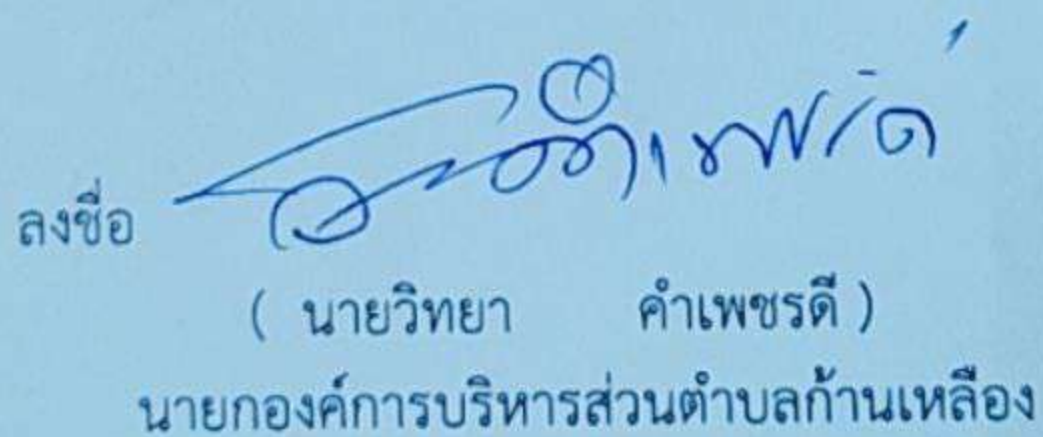 ลงชื่อ
( นายวิทยา คำเพชรดี )
นายกองค์การบริหารส่วนตำบลก้านเหลือง